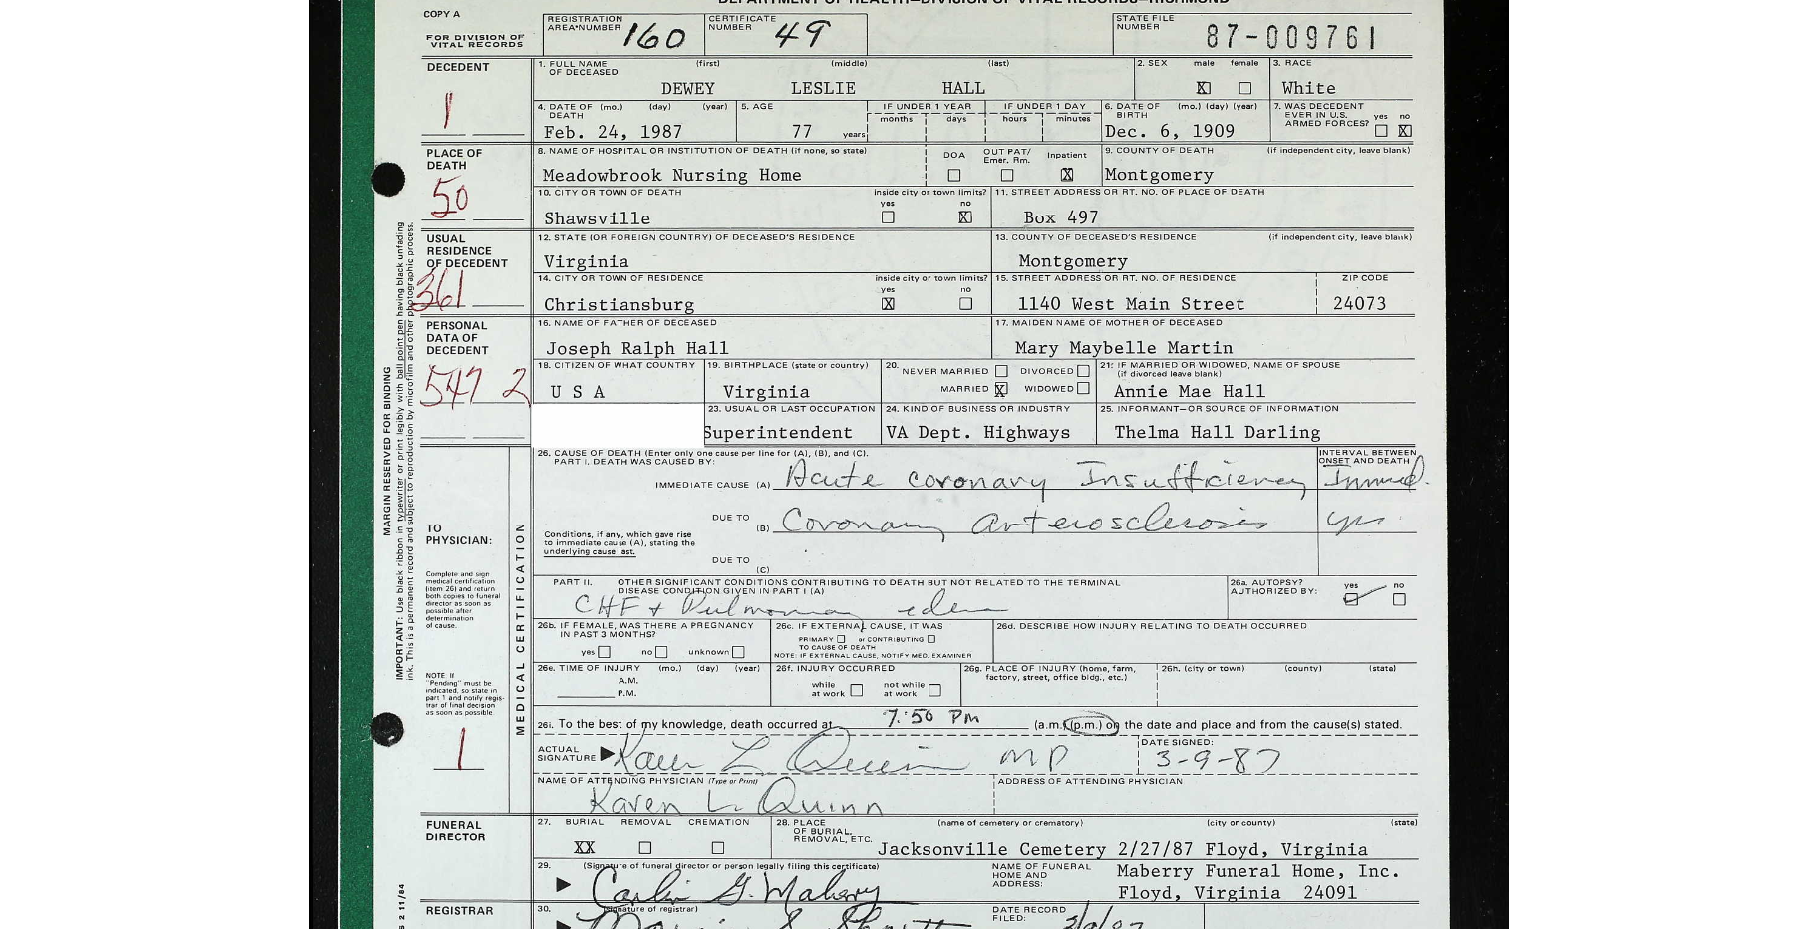 DEPARTMENT OF HEALTH—DIVISION OF VITAL RECORDS—RICHMOND
COPY A
FOR DIVISION OF VITAL RECORDS
REGISTRATION AREA NUMBER 160
CERTIFICATE NUMBER 49
STATE FILE NUMBER 87-009761
DECEDENT
1
1. FULL NAME OF DECEASED (first) (middle) (last)
DEWEY LESLIE HALL
2. SEX male female
X
3. RACE
White
4. DATE OF DEATH (mo.) (day) (year)
Feb. 24, 1987
5. AGE
77 years
IF UNDER 1 YEAR
months days
IF UNDER 1 DAY
hours minutes
6. DATE OF BIRTH (mo.) (day) (year)
Dec. 6, 1909
7. WAS DECEDENT EVER IN U.S. ARMED FORCES? yes no
X
PLACE OF DEATH
50
8. NAME OF HOSPITAL OR INSTITUTION OF DEATH (if none, so state)
Meadowbrook Nursing Home
DOA OUT PAT/ Emer. Rm. Inpatient
X
9. COUNTY OF DEATH (if independent city, leave blank)
Montgomery
10. CITY OR TOWN OF DEATH
Shawsville
inside city or town limits?
yes no
X
11. STREET ADDRESS OR RT. NO. OF PLACE OF DEATH
Box 497
USUAL RESIDENCE OF DECEDENT
361
12. STATE (OR FOREIGN COUNTRY) OF DECEASED'S RESIDENCE
Virginia
13. COUNTY OF DECEASED'S RESIDENCE (if independent city, leave blank)
Montgomery
14. CITY OR TOWN OF RESIDENCE
Christiansburg
inside city or town limits?
yes no
X
15. STREET ADDRESS OR RT. NO. OF RESIDENCE
1140 West Main Street
ZIP CODE
24073
PERSONAL DATA OF DECEDENT
547 2
16. NAME OF FATHER OF DECEASED
Joseph Ralph Hall
17. MAIDEN NAME OF MOTHER OF DECEASED
Mary Maybelle Martin
18. CITIZEN OF WHAT COUNTRY
U S A
19. BIRTHPLACE (state or country)
Virginia
20. NEVER MARRIED DIVORCED
MARRIED X WIDOWED
21. IF MARRIED OR WIDOWED, NAME OF SPOUSE
(if divorced leave blank)
Annie Mae Hall
23. USUAL OR LAST OCCUPATION
Superintendent
24. KIND OF BUSINESS OR INDUSTRY
VA Dept. Highways
25. INFORMANT—OR SOURCE OF INFORMATION
Thelma Hall Darling
MARGIN RESERVED FOR BINDING
IMPORTANT: Use black ribbon in typewriter or print legibly with ball point pen having black unfading
ink. This is a permanent record and subject to reproduction by microfilm and other photographic process.
TO PHYSICIAN:
Complete and sign
medical certification
(item 26) and return
both copies to funeral
director as soon as
possible after
determination
of cause.
NOTE If
"Pending" must be
indicated, so state in
part 1 and notify regis-
trar of final decision
as soon as possible
1
MEDICAL CERTIFICATION
26. CAUSE OF DEATH (Enter only one cause per line for (A), (B), and (C).
PART I. DEATH WAS CAUSED BY:
INTERVAL BETWEEN ONSET AND DEATH
IMMEDIATE CAUSE (A) Acute coronary Insufficiency Immed.
DUE TO (B) Coronary arterosclerosis yrs
Conditions, if any, which gave rise
to immediate cause (A), stating the
underlying cause ast.
DUE TO (C)
PART II. OTHER SIGNIFICANT CONDITIONS CONTRIBUTING TO DEATH BUT NOT RELATED TO THE TERMINAL
DISEASE CONDITION GIVEN IN PART I (A)
CHF + Pulmonary edema
26a. AUTOPSY? AUTHORIZED BY: yes no
26b. IF FEMALE, WAS THERE A PREGNANCY
IN PAST 3 MONTHS?
yes no unknown
26c. IF EXTERNAL CAUSE, IT WAS
PRIMARY or CONTRIBUTING
TO CAUSE OF DEATH
NOTE: IF EXTERNAL CAUSE, NOTIFY MED. EXAMINER
26d. DESCRIBE HOW INJURY RELATING TO DEATH OCCURRED
26e. TIME OF INJURY (mo.) (day) (year)
A.M.
P.M.
26f. INJURY OCCURRED
while at work not while at work
26g. PLACE OF INJURY (home, farm,
factory, street, office bldg., etc.)
26h. (city or town) (county) (state)
26i. To the best of my knowledge, death occurred at 7:50 PM (a.m.) (p.m.) on the date and place and from the cause(s) stated.
ACTUAL SIGNATURE Karen L Quinn MD
DATE SIGNED:
3-9-87
NAME OF ATTENDING PHYSICIAN (Type or Print)
Karen L. Quinn
ADDRESS OF ATTENDING PHYSICIAN
FUNERAL DIRECTOR
27. BURIAL REMOVAL CREMATION
XX
28. PLACE OF BURIAL, REMOVAL, ETC. (name of cemetery or crematory) (city or county) (state)
Jacksonville Cemetery 2/27/87 Floyd, Virginia
29. (Signature of funeral director or person legally filing this certificate)
Carlin G. Mabery
NAME OF FUNERAL HOME AND ADDRESS:
Maberry Funeral Home, Inc.
Floyd, Virginia 24091
REGISTRAR
30. (signature of registrar)
DATE RECORD FILED:
S 2 11/84